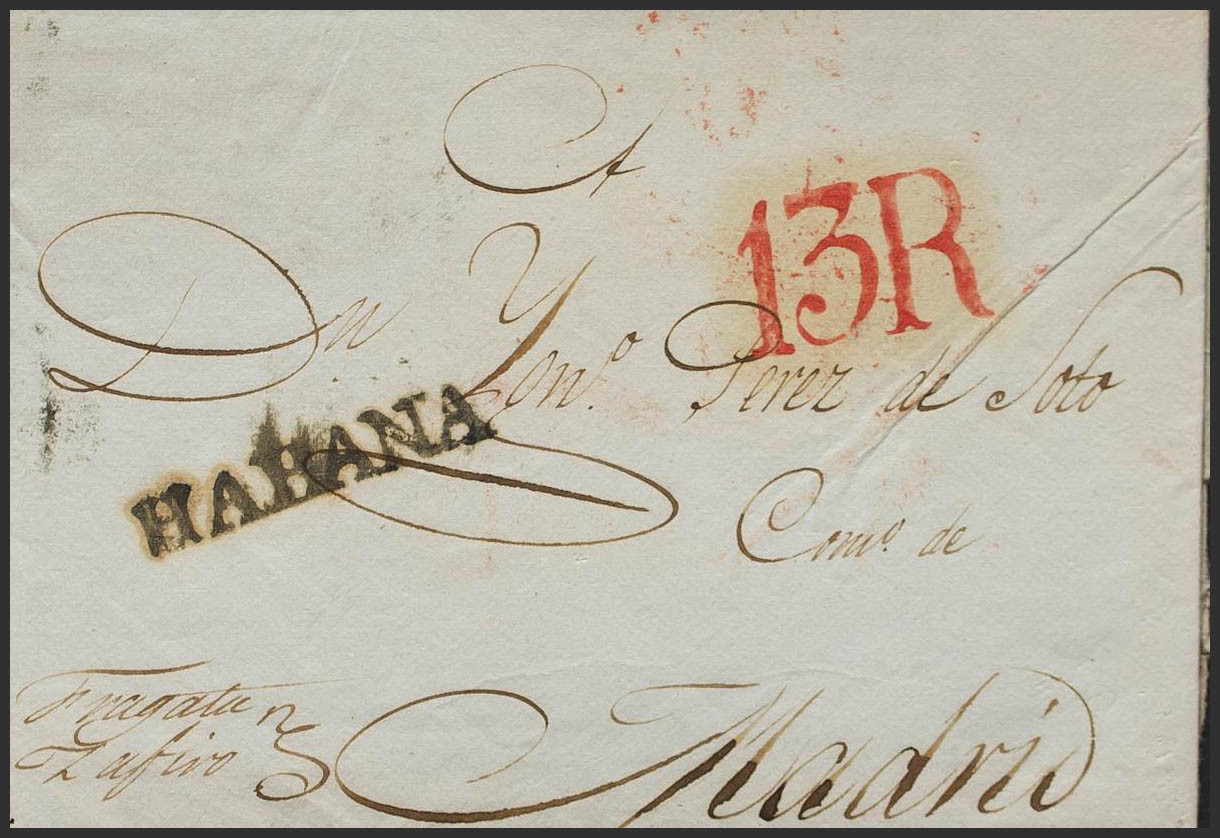 A
13R
Dn Yon.º Perez de Soto
HABANA
Com.º de
Fragata
Zafiro
Madrid